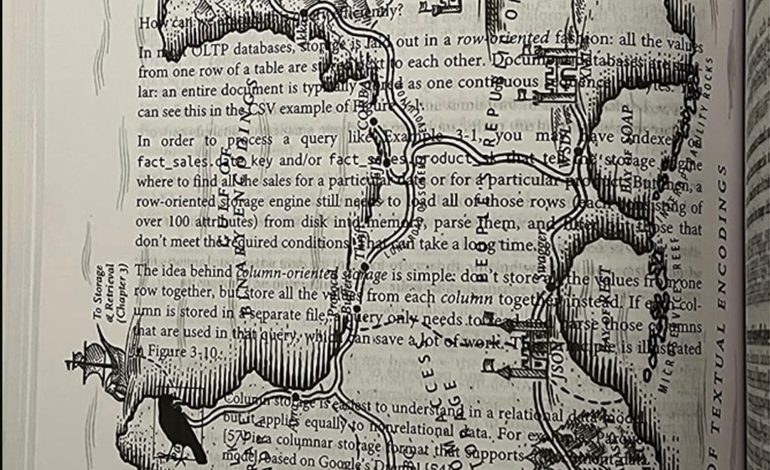 How can efficiently?
In most OLTP databases, storage is laid out in a row-oriented fashion: all the values
from one row of a table are stored next to each other. Document databases are
lar: an entire document is typically stored as one continuous sequence bytes.
can see this in the CSV example of Figure 3-1.
In order to process a query like Example 3-1, you may have indexes
fact_sales.date_key and/or fact_sales.product that tell the storage engine
where to find all the sales for a particular date or for a particular product. But then, a
row-oriented storage engine still needs to load all of those rows (each consisting of
over 100 attributes) from disk into memory, parse them, and those that
don't meet the required conditions. That can take a long time.
The idea behind column-oriented storage is simple: don't store all the values from one
row together, but store all the values from each column together instead. If each col-
umn is stored in a separate file, a query only needs to read and parse those columns
that are used in that query, which can save a lot of work. This principle is illustrated
in Figure 3-10.
Column storage is easiest to understand in a relational data model,
but it applies equally to nonrelational data. For example, Parquet
[57] is a columnar storage format that supports a document data
model, based on Google's Dremel [54]
To Storage
& Retrieval
(Chapter 3)
GULF OF
BINARY ENCODINGS
CORBA
Thrift
Protocol
Buffers
WSDL
XML
Swagger
JSON
BAY OF SOAP
BAY OF REST
F TEXTUAL ENCODINGS